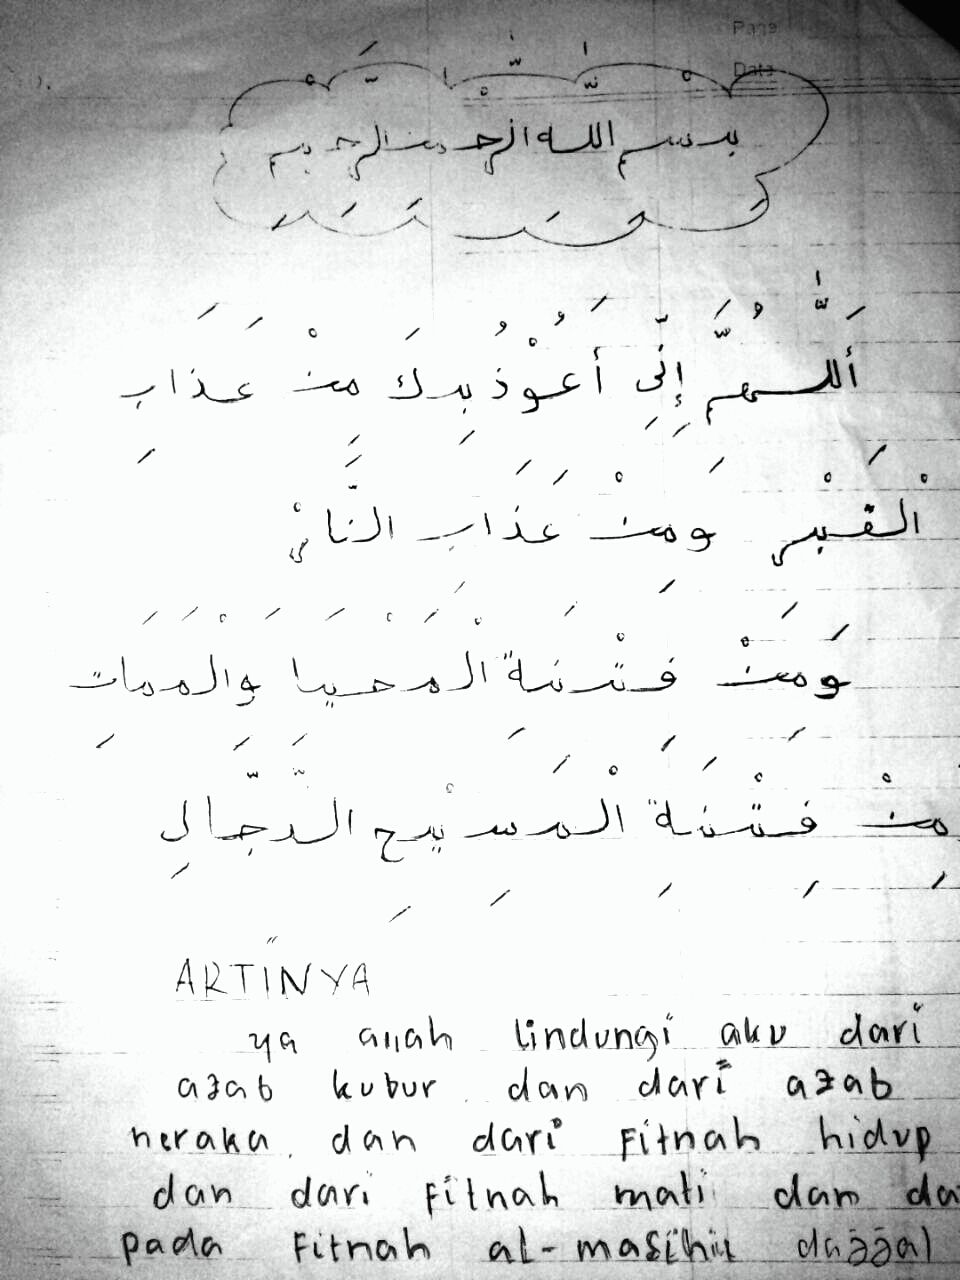 Page
Data
بسم الله الرحمن الرحيم
أَللّٰهُمَّ إِنِّي أَعُوْذُ بِكَ مَنْ عَذَابِ
الْقَبْرِ وَمَنْ عَذَابِ النَّارْ
وَمَنْ فِتْنَةِ الْمَحْيَا وَالْمَمَاتِ
مِنْ فِتْنَةِ الْمَسِيْحِ الدَّجَّالِ
ARTINYA
ya allah lindungi aku dari
azab kubur dan dari azab
neraka dan dari Fitnah hidup
dan dari Fitnah mati dan da
pada Fitnah al-masihil dajjal